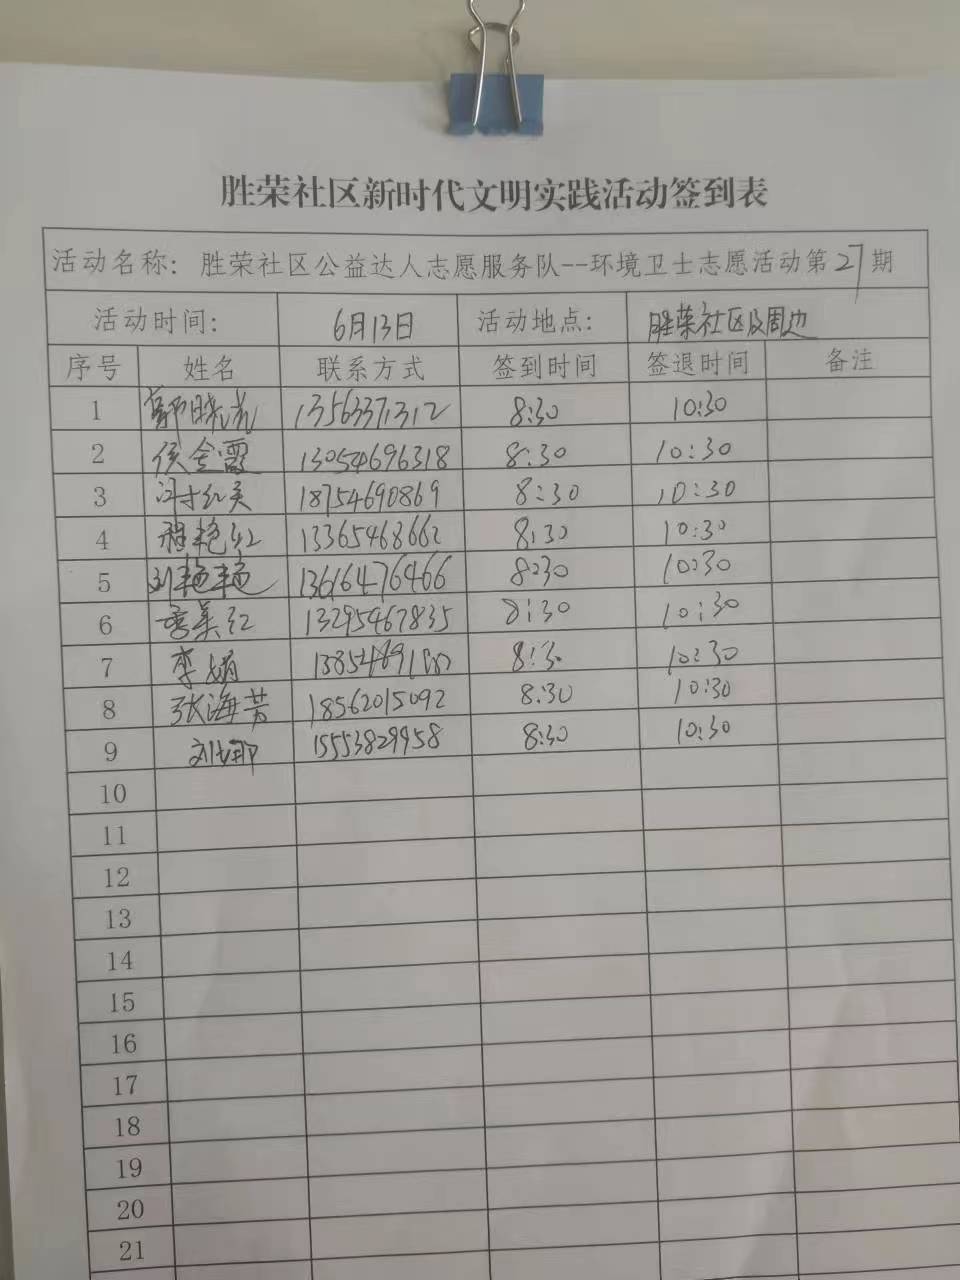 胜荣社区新时代文明实践活动签到表
活动名称：胜荣社区公益达人志愿服务队--环境卫士志愿活动第27期
活动时间： 6月13日 活动地点： 胜荣社区及周边
序号 姓名 联系方式 签到时间 签退时间 备注
1 郭晓 13563371312 8:30 10:30
2 侯金霞 13054696318 8:30 10:30
3 红英 18754690869 8:30 10:30
4 程艳红 13365468662 8:30 10:30
5 刘艳艳 13616476466 8:30 10:30
6 美红 13295467835 8:30 10:30
7 李娟 8:30 10:30
8 张海芳 18562015092 8:30 10:30
9 刘娜 15553829958 8:30 10:30
10
11
12
13
14
15
16
17
18
19
20
21